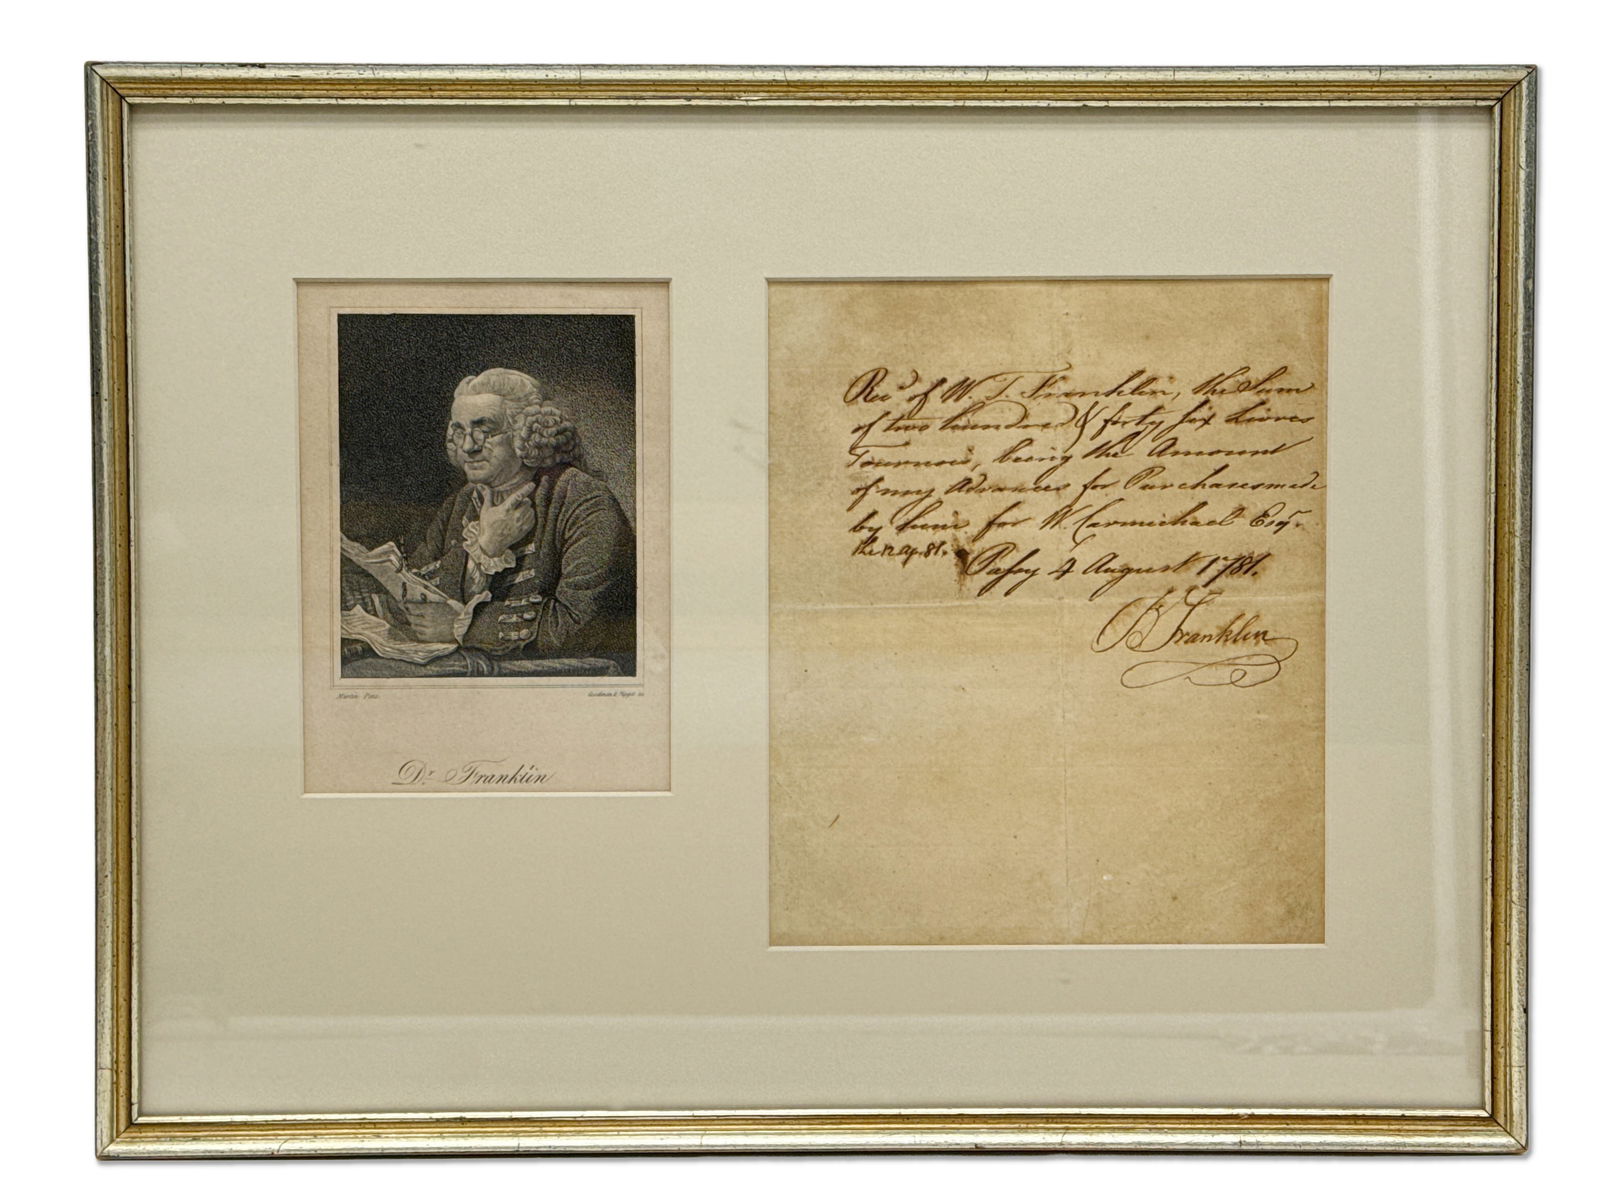 Martin Pinx.
Dr. Franklin
Recd of W. T. Franklin, the Sum
of two hundred & forty six Livres
Tournois, being the Amount
of my Advances for Purchases made
by him for W. Carmichael Esqr.
the 12 Ap. 81.
Passy 4 August 1781.
B Franklin